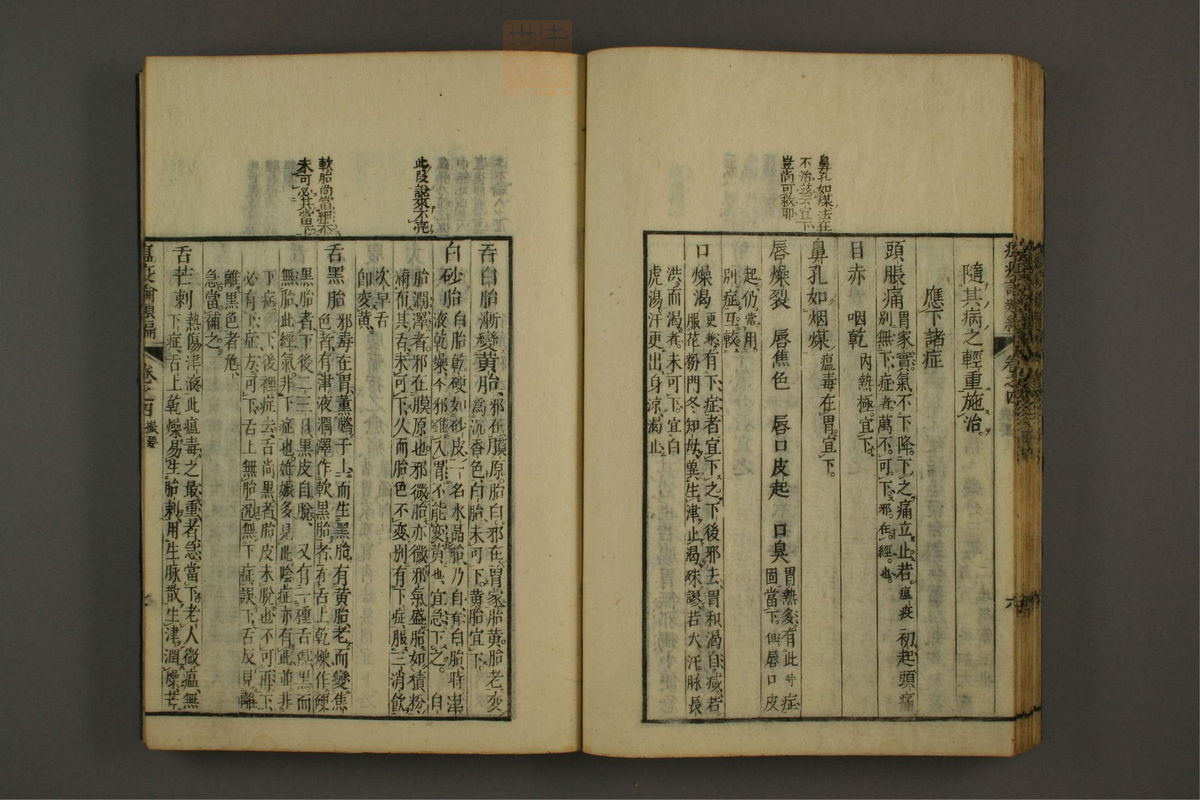 鼻孔如煤法在
不治玆云宜下
豈尚可救耶
隨其病之輕重施治
應下諸症
頭脹痛胃家實氣不下降下之痛立止若瘟疫初起頭痛
別無下症者萬不可下邪在經也
目赤 咽乾內熱極宜下
鼻孔如烟煤瘟毒在胃宜下
唇燥裂 唇焦色 唇口皮起 口臭胃熱多有此等症
固當下但唇口皮
起仍常用
別症互較
口燥渴更兼有下症者宜下之下後邪去胃和渴自減若
服花粉門冬知母冀生津止渴殊謬若大汗脉長
洪而渴者未可下宜白
虎湯汗更出身涼渴止
此段說來不亮
軟胎尚當細
未可必其當下
舌白胎漸變黃胎邪在膜原胎白邪在胃家胎黃胎老變
為沉香色白胎未可下黃胎宜下
白砂胎白胎乾硬如砂皮一名水晶胎乃自有白胎時津
液乾燥今邪雖入胃不能變黃也宜急下之 白
胎潤澤者邪在膜原也邪微胎亦微邪氣盛胎如積粉
滿布其舌未可下久而胎色不變別有下症服三消飲
次早舌
即變黃
舌黑胎邪毒在胃薰騰于上而生黑胎有黃胎老而變焦
色者有津液潤澤作軟黑胎者有舌上乾燥作硬
黑胎者下後二三日黑皮自脫 又有一種舌俱黑而
無胎此經氣非下症也姙娠多見此陰症亦有此並非
下病 下後裡症去舌尚黑者胎皮未脫也不可再下
必有下症方可下舌上無胎况無下症誤下舌反見離
離黑色者危
急當補之
舌芒刺熱傷津液此瘟毒之最重者急當下老人微瘟無
下症舌上乾燥易生胎刺用生脉散生津潤燥芒
瘟疫論類編 卷之四